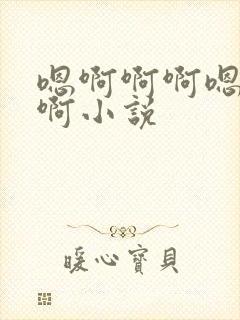 嗯啊啊啊嗯
啊小説
暖心寶貝